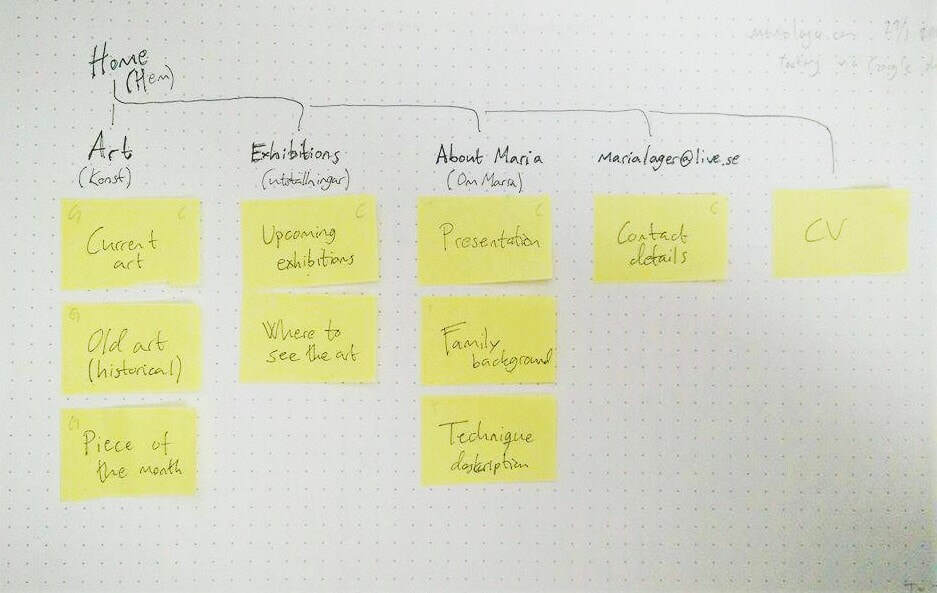 Home
(Hem)
Art
(Konst)
Exhibitions
(utställningar)
About Maria
(Om Maria)
marialager@live.se
G C
Current
art
C
Upcoming
exhibitions
C
Presentation
C
Contact
details
CV
G
Old art
(historical)
Where to
see the art
Family
background
G
Piece of
the month
T
Technique
deskription